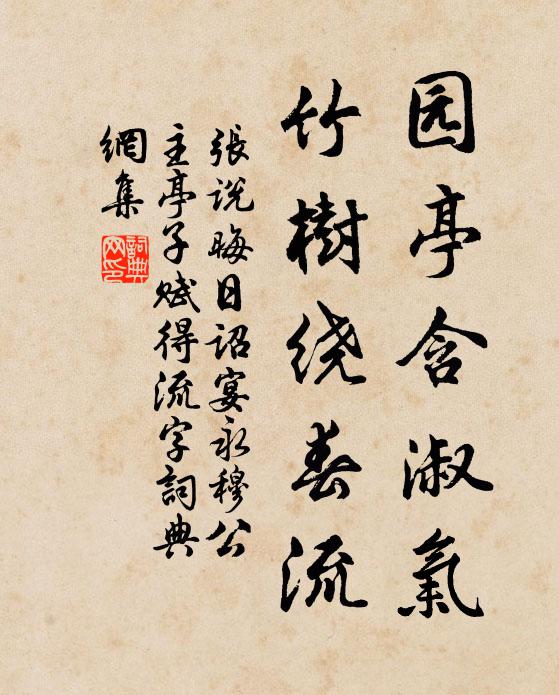 园亭含淑氣
竹樹绕春流
張说晦日诏宴永穆公
主亭子赋得流字詞典
網集
詞典网印